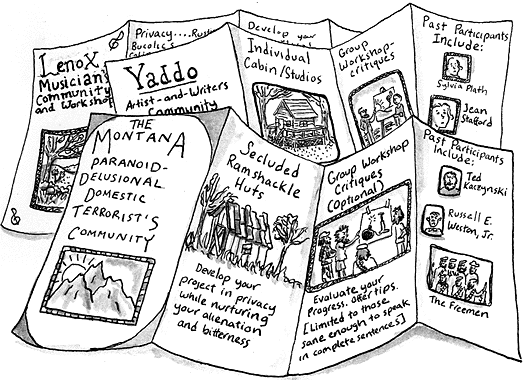 Lenox
Musician's
Community
and Workshop
Privacy....
Bucolic
Develop your
Yaddo
Artist-and-Writers
Community
Individual
Cabin/Studios
Group
Workshop-
critiques
Past Participants
Include:
Sylvia Plath
Jean
Stafford
THE
MONTANA
PARANOID-
DELUSIONAL
DOMESTIC
TERRORIST'S
COMMUNITY
Secluded
Ramshackle
Huts
Develop your
project in privacy
while nurturing
your alienation
and bitterness
Group Workshop
Critiques
(Optional)
Evaluate your
Progress. Offer tips.
[Limited to those
sane enough to speak
in complete sentences]
Past Participants
Include:
Ted
Kaczynski
Russell E.
Weston, Jr.
The Freemen